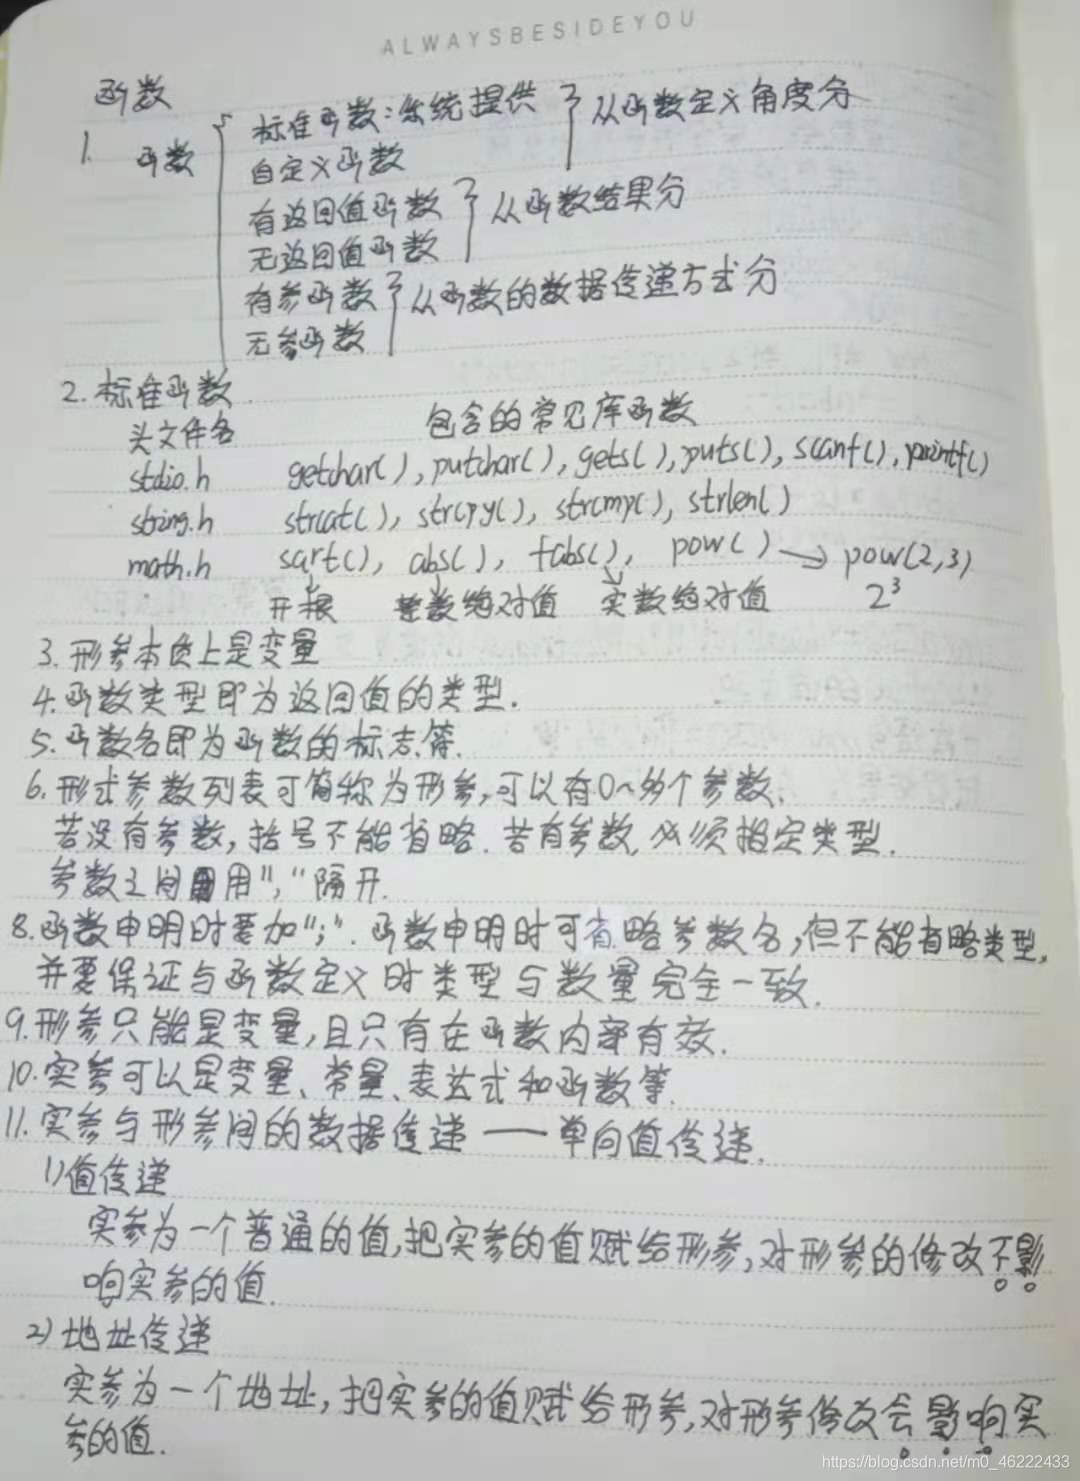 ALWAYSBESIDEYOU
函数
1. 函数
标准函数:系统提供
自定义函数
从函数定义角度分
有返回值函数
无返回值函数
从函数结果分
有参函数
无参函数
从函数的数据传递方式分
2. 标准函数
头文件名 包含的常见库函数
stdio.h getchar(), putchar(), gets(), puts(), scanf(), printf()
string.h strcat(), strcpy(), strcmp(), strlen()
math.h sqrt(), abs(), fabs(), pow() → pow(2,3)
开根 整数绝对值 实数绝对值 2³
3. 形参本质上是变量
4. 函数类型即为返回值的类型.
5. 函数名即为函数的标志符.
6. 形式参数列表可简称为形参,可以有0~多个参数.
若没有参数, 括号不能省略. 若有参数, 必须指定类型.
参数之间用"," 隔开.
8. 函数申明时要加";". 函数申明时可省略参数名,但不能省略类型,
并要保证与函数定义时类型与数量完全一致.
9. 形参只能是变量,且只有在函数内部有效.
10. 实参可以是变量、常量、表达式和函数等.
11. 实参与形参间的数据传递——单向值传递.
1) 值传递
实参为一个普通的值,把实参的值赋给形参,对形参的修改不影
响实参的值.
2) 地址传递
实参为一个地址, 把实参的值赋给形参,对形参修改会影响实
参的值.
https://blog.csdn.net/m0_46222433